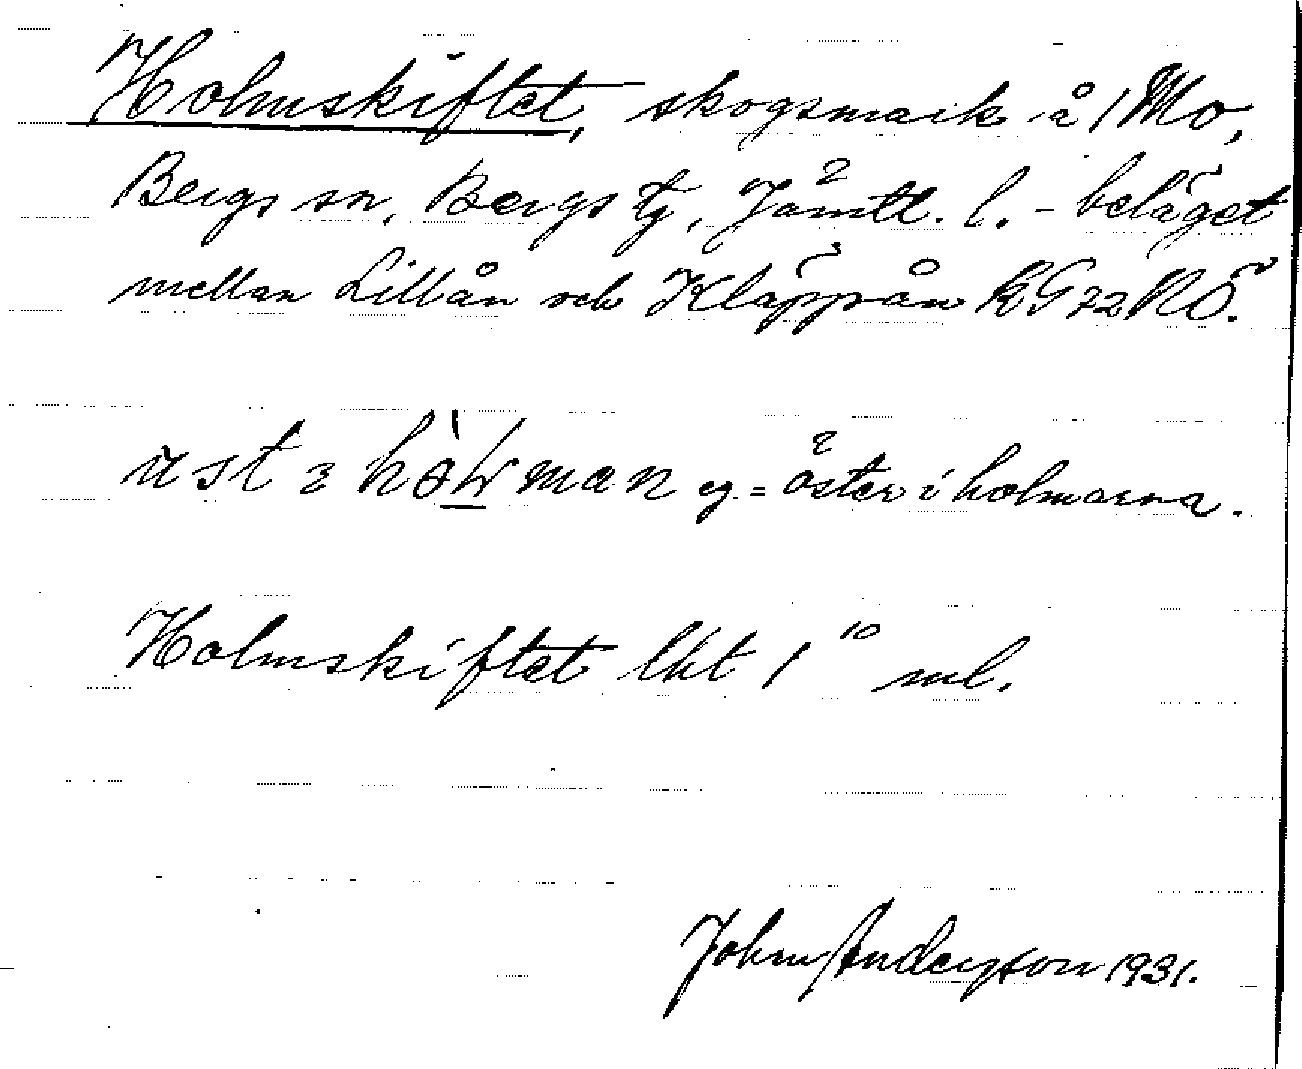 Holmskiftet, skogsmark å 1 Mo,
Bergs sn, Bergs tg, Jämtl. l. - beläget
mellan Lillån och Kläppån
man eg. = öster i holmarna.
Holmskiftet lkt 1¹⁰ ml.
John Anderson 1931.